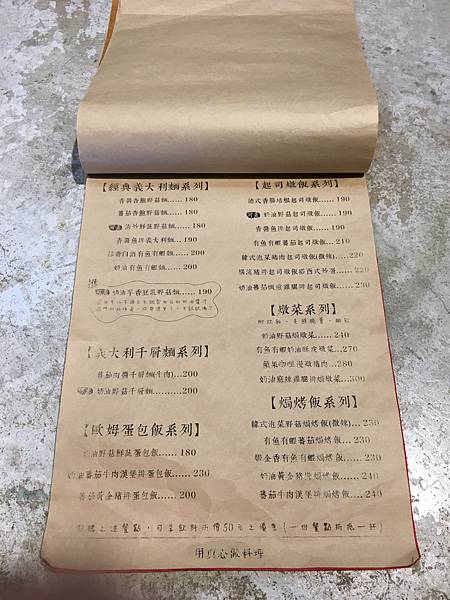 【經典義大利麵系列】
青醬香腸野菇麵......180
蕃茄香腸野菇麵......180
清炒鮮蔬野菇麵......180
青醬魚排義大利麵...190
蒜香白酒有魚有蝦麵......200
奶油有魚有蝦麵......200
推
奶油芋香豆乳野菇麵......190
【義大利千層麵系列】
蕃茄肉醬千層麵(牛肉)...200
奶油野菇千層麵......200
【歐姆蛋包飯系列】
奶油野菇鮮蔬蛋包飯......180
奶油蕃茄牛肉漢堡排蛋包飯...230
蕃茄黃金豬排蛋包飯......200
【起司燉飯系列】
德式香腸培根起司燉飯...190
奶油野菇起司燉飯...190
青醬魚排起司燉飯...190
有魚有蝦蕃茄起司燉飯...210
韓式泡菜豬肉起司燉飯(微辣)...220
起司燉飯搭西式炒蛋...220
奶油蕃茄
雞腿排起司燉飯...240
【燉菜系列】
奶油野菇燉菜......240
有魚有蝦奶油
燉菜...270
蘋果咖哩燉豬肉...280
奶油麻辣雞腿排焗燉菜...300
【焗烤飯系列】
韓式泡菜野菇焗烤飯(微辣)...230
有魚有蝦蕃茄焗烤飯...230
鬱金香有魚有蝦焗烤飯...230
奶油黃金豬排焗烤飯...240
蕃茄牛肉漢堡排焗烤飯...240
點購上述餐點，可享飲料折價50元之優惠(一份餐點折抵一杯)
用真心做料理